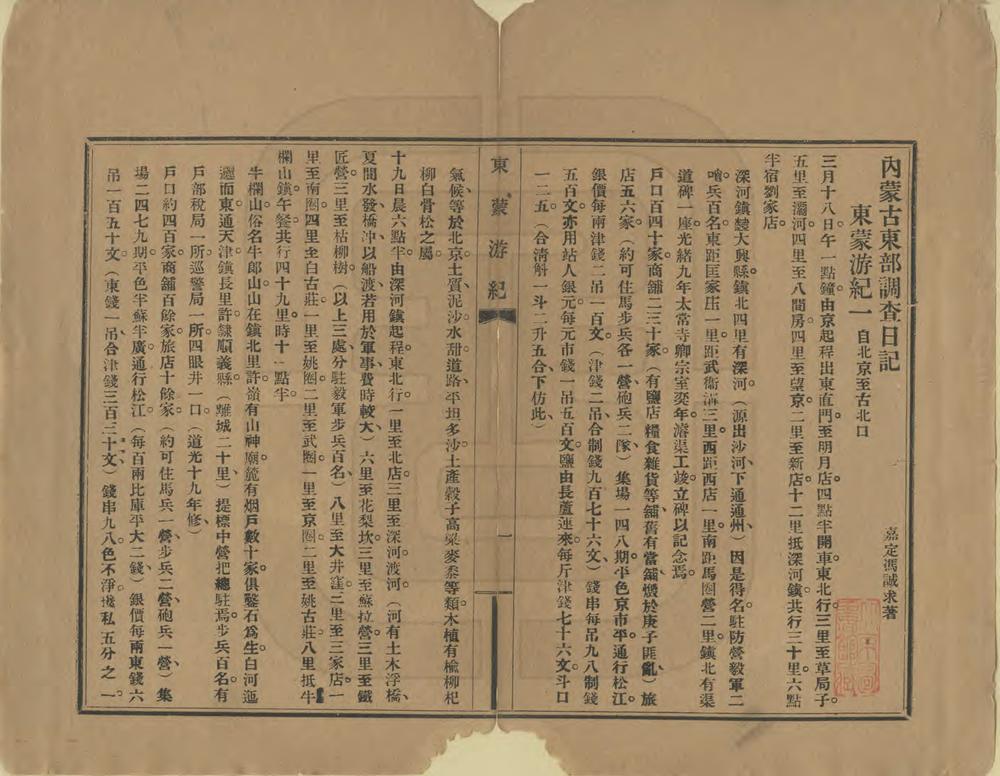 內蒙古東部調查日記
東蒙游紀一 自北京至古北口
嘉定馮誠求著
三月十八日午一點鐘由京起程出東直門至明月店四點半開車東北行三里至草局子
五里至灞河四里至八間房四里至望京二里至新店十二里抵深河鎮共行三十里六點
半宿劉家店
深河鎮隸大興縣鎮北四里有深河(源出沙河下通通州)因是得名駐防營毅軍二
哨兵百名東距匡家庄一里距武衛溝三里西距西店一里南距馬圈營二里鎮北有渠
道碑一座光緒九年太常寺卿宗室奕年濬渠工竣立碑以記念焉
戶口百四十家商舖二三十家(有鹽店糧食雜貨等舖舊有當舖燬於庚子匪亂)旅
店五六家(約可住馬步兵各一營砲兵二隊)集場一四八期平色京市平通行松江
銀價每兩津錢二吊一百文(津錢二吊合制錢九百七十六文)錢串每吊九八制錢
五百文亦用站人銀元每元市錢一吊五百文鹽由長蘆運來每斤津錢七十六文斗口
一二五(合清斛一斗二升五合下仿此)
東蒙游紀
一
氣候等於北京土質泥沙水甜道路平坦多沙土產穀子高粱麥黍等類木植有榆柳杞
柳白骨松之屬
十九日晨六點半由深河鎮起程東北行一里至北店三里至深河渡河(河有土木浮橋
夏間水發橋沖以船渡若用於軍事費時較大)六里至花梨坎三里至蘇拉營三里至鐵
匠營三里至枯柳樹(以上三處分駐毅軍步兵百名)八里至大井窪二里至三家店一
里至南圈四里至白古莊一里至姚圈二里至武圈一里至京圈二里至姚古莊八里抵牛
欄山鎮午餐共行四十九里時十一點半
牛欄山俗名牛郎山山在鎮北里許嶺有山神廟麓有烟戶數十家俱鑿石爲生白河迤
邐而東通天津鎮長里許隸順義縣(離城二十里)提標中營把總駐焉步兵百名有
戶部稅局一所巡警局一所四眼井一口(道光十九年修)
戶口約四百家商舖百餘家旅店十餘家(約可住馬兵一營步兵二營砲兵一營)集
場二四七九期平色半蘇半廣通行松江(每百兩比庫平大二錢)銀價每兩東錢六
吊一百五十文(東錢一吊合津錢三百三十文)錢串九八色不淨攙私五分之一